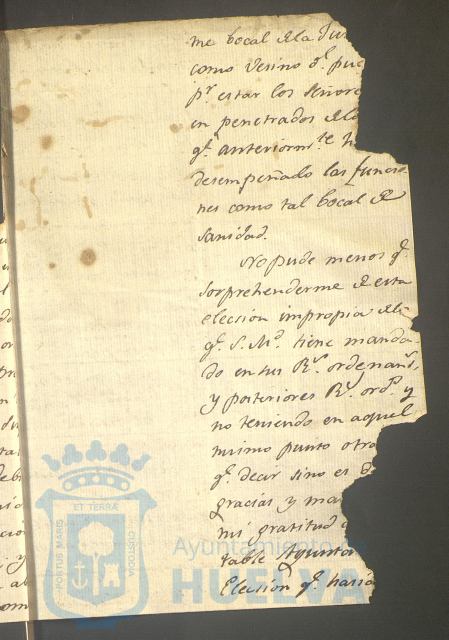 me bocal de la Jun
como Vesino q.e pue
p.r estar los Señore
en penetrados de lo
q.e anteriorm.te h
desempeñado las funcio
nes como tal bocal de
sanidad.
No pude menos q.e
sorprehenderme de esta
eleccion impropia de lo
q.e S. M.d tiene manda
do en sus R.s ordenan.s,
y posteriores R.s ord.s y
no teniendo en aquel
mismo punto otro
q.e decir sino es d
gracias y ma
mi gratitud
table Ayuntam
Eleccion q.e havia
ET TERRÆ
PORTUS MARIS
CUSTODIA
Ayuntamiento de
HUELVA